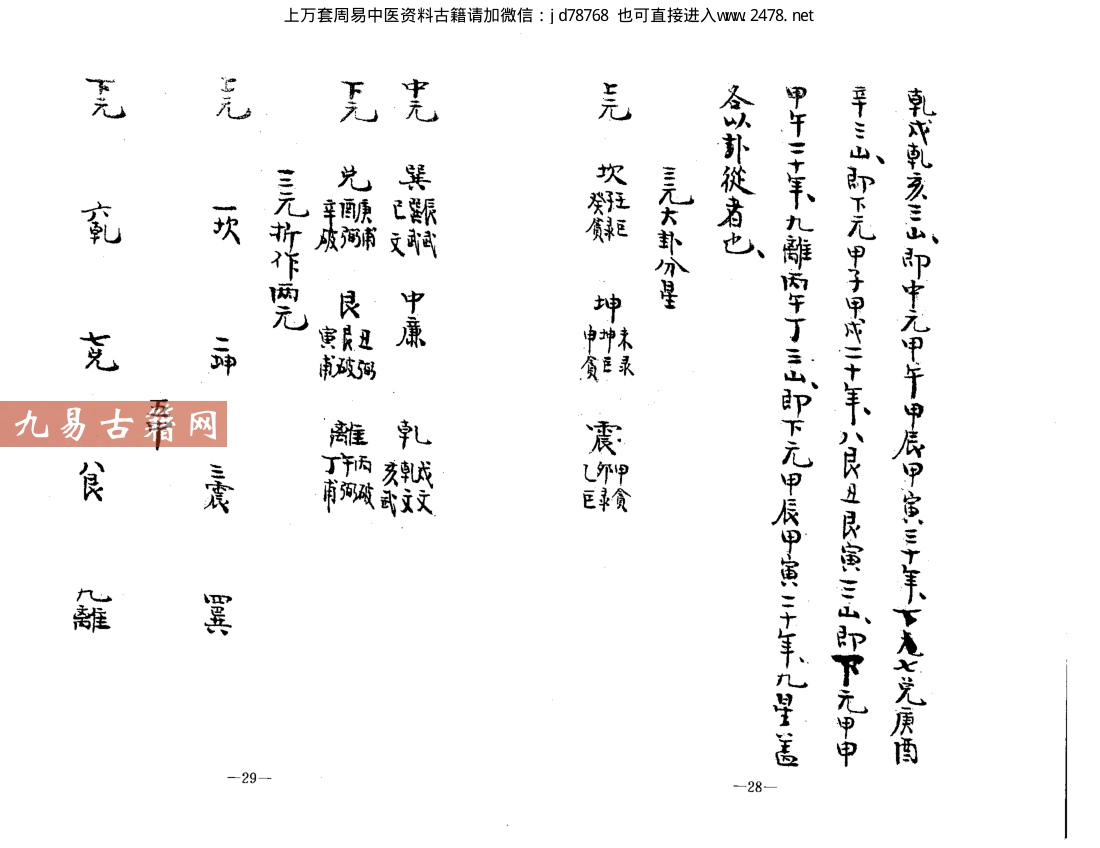 上万套周易中医资料古籍请加微信：jd78768 也可直接进入www.2478.net
乾戌乾亥三山、即中元甲午甲辰甲寅三十年、下元七兑庚酉
辛三山、即下元甲子甲戌二十年、八艮丑艮寅三山、即下元甲申
甲午二十年、九離丙午丁三山、即下元甲辰甲寅二十年、九星盖
各以卦從者也、
三元大卦分星
上元 坎 壬巨 子录 癸貪 坤 未录 坤巨 申貪 震 甲貪 夘录 乙巨
—28—
中元 巽 辰武 巽武 巳文 中廉 乾 戌文 乾文 亥武
下元 兑 庚甫 酉弼 辛破 艮 丑弼 艮破 寅甫 離 丙破 午弼 丁甫
三元折作两元
上元 一坎 二坤 三震 四巽
五中
下元 六乾 七兑 八艮 九離
—29—
九易古籍网